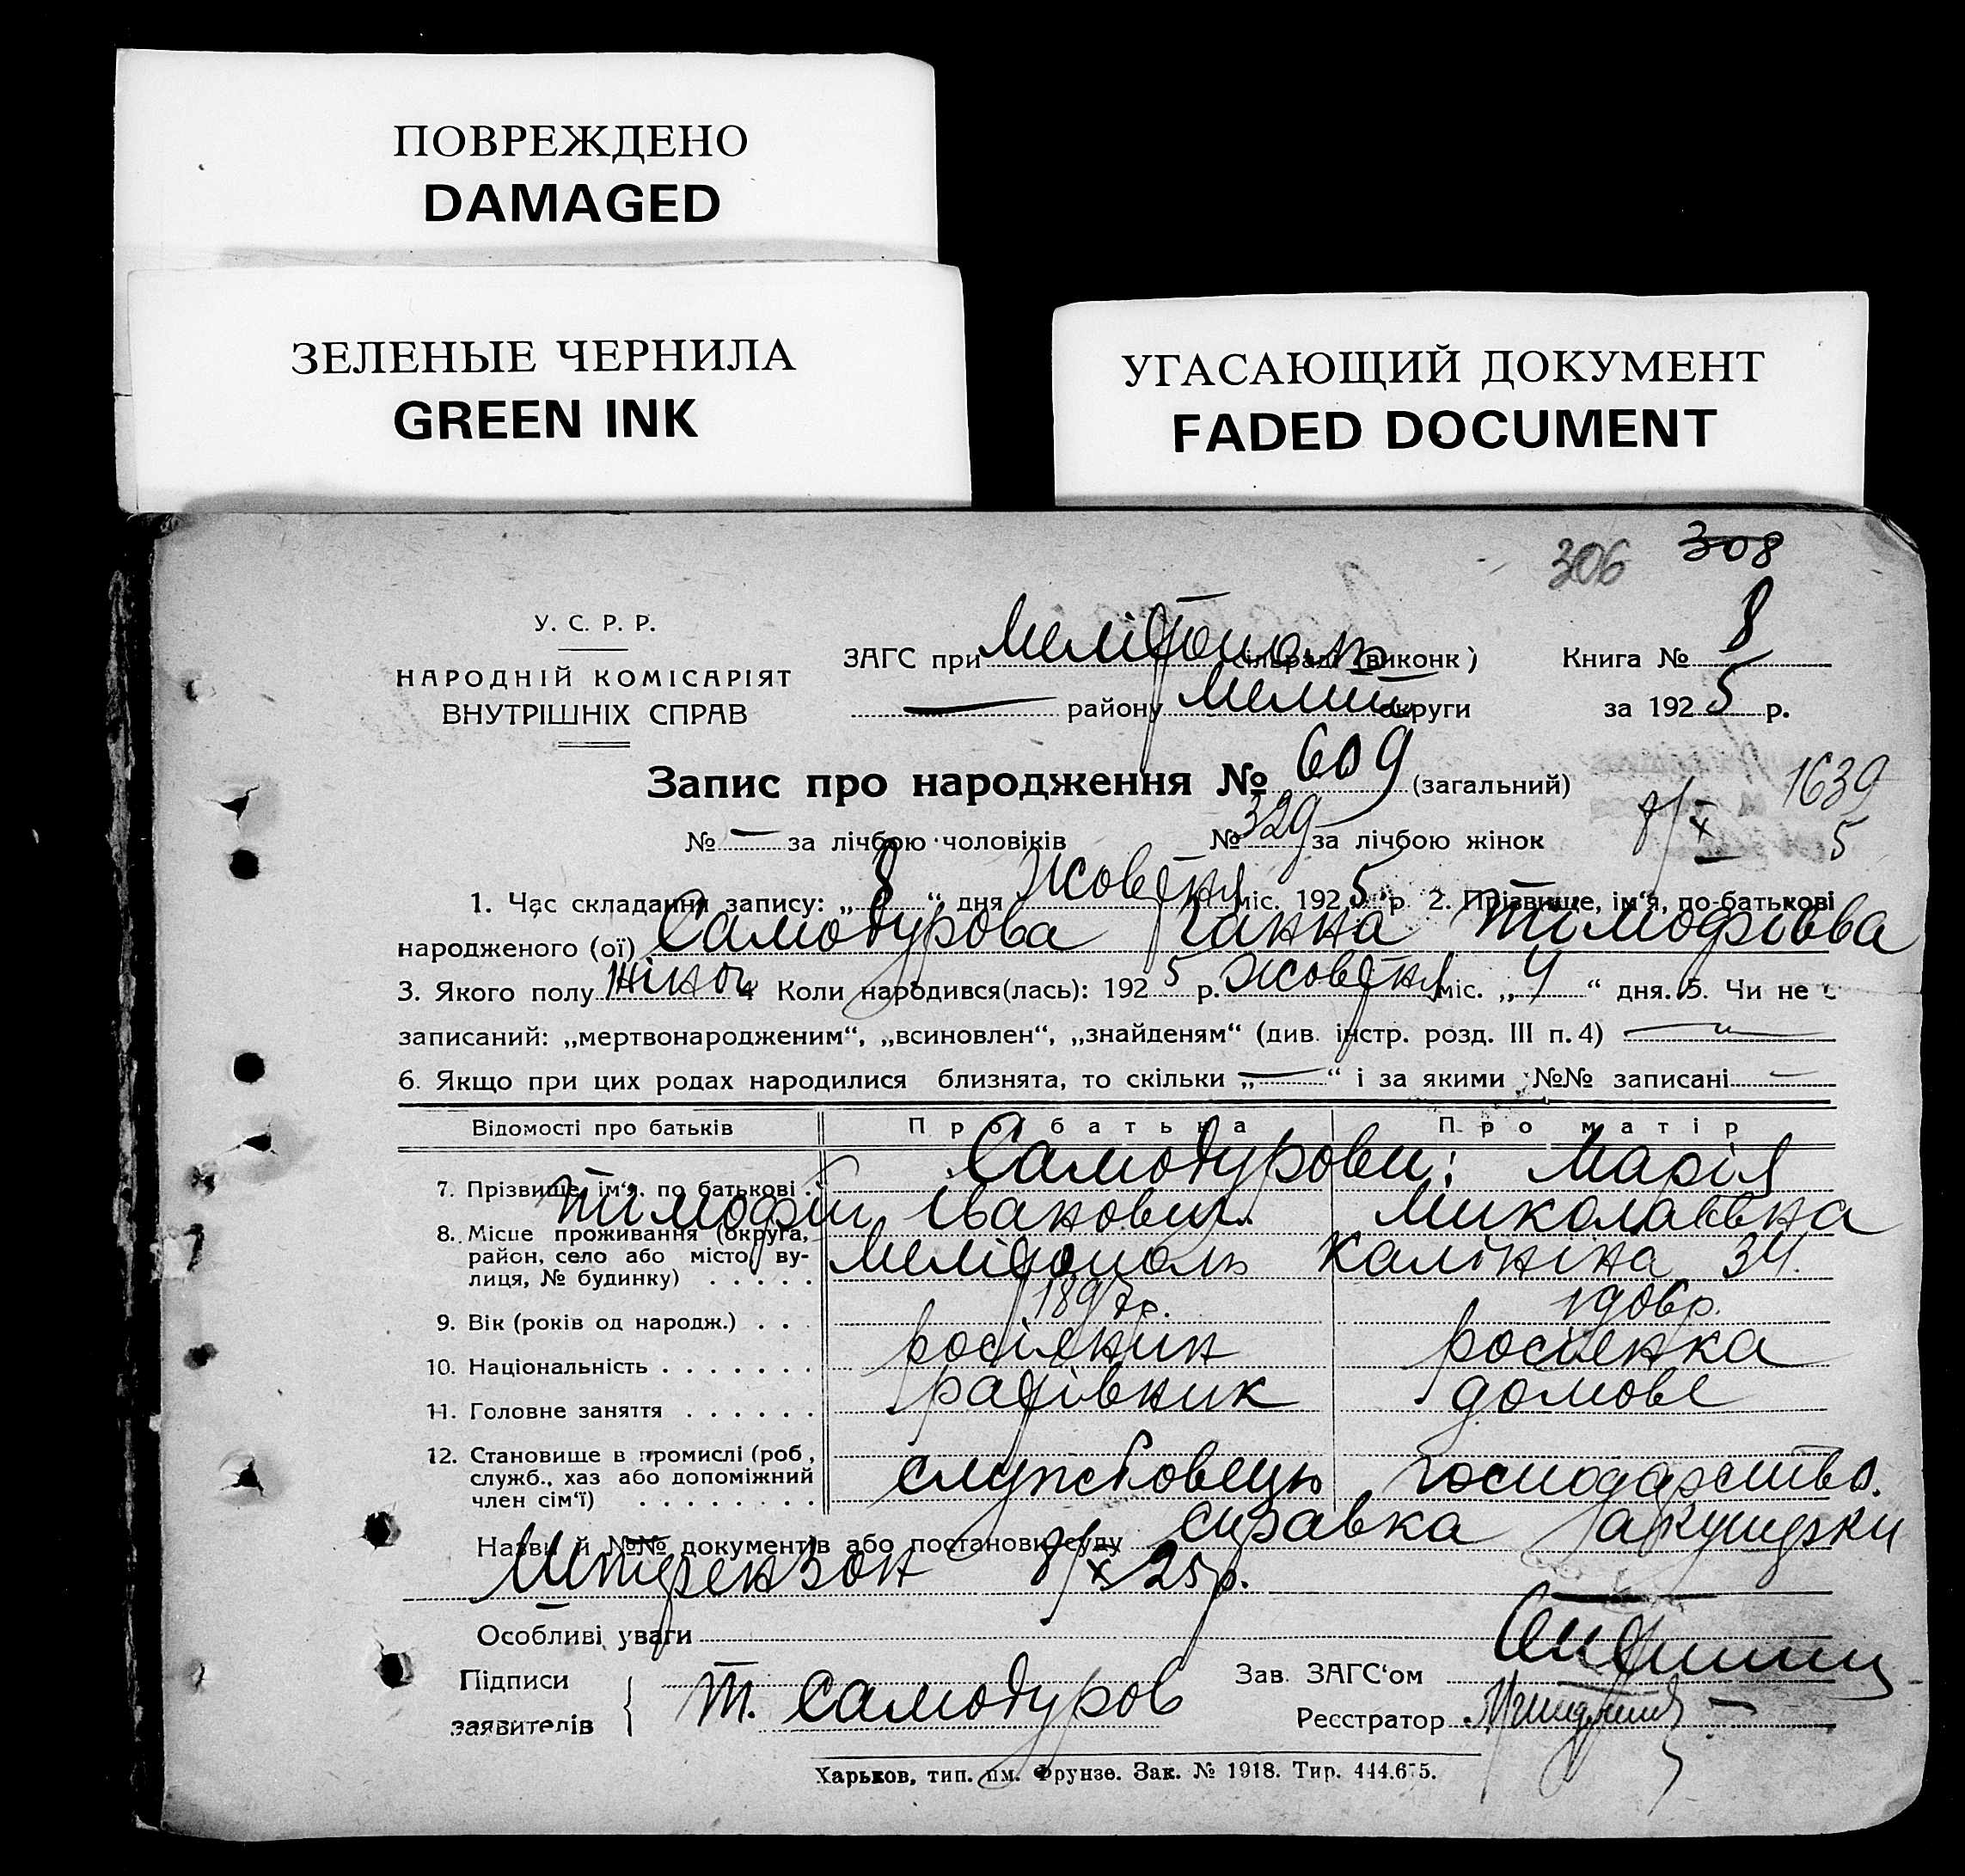 ПОВРЕЖДЕНО
DAMAGED
ЗЕЛЕНЫЕ ЧЕРНИЛА
GREEN INK
УГАСАЮЩИЙ ДОКУМЕНТ
FADED DOCUMENT
306 308
У. С. Р. Р.
НАРОДНІЙ КОМІСАРІЯТ
ВНУТРІШНІХ СПРАВ
ЗАГС при Мелітополь сільраді (виконк) Книга № 8
— району Мелит округи за 1925 р.
Запис про народження № 609 (загальний)
1639
№ — за лічбою чоловіків № 329 за лічбою жінок 8/X 5
1. Час складання запису: „8“ дня Жовтня міс. 1925 р. 2. Прізвище, ім'я, по-батькові
народженого (ої) Самодурова Ганна Тімофіївва
3. Якого полу жіноч 4 Коли народився(лась): 1925 р. Жовтня міс. „4“ дня. 5. Чи не є
записаний: „мертвонародженим“, „всиновлен“, „знайденям“ (див. інстр. розд. III п. 4) —
6. Якщо при цих родах народилися близнята, то скільки „—“ і за якими №№ записані —
Відомості про батьків Про батька Про матір
7. Прізвище, ім'я, по батькові Самодурови: Марія
Тимофій Іванович Миколаївна
8. Місце проживання (округа, район, село або місто, вулиця, № будинку) Мелітополь Калініна 34.
9. Вік (років од народж.) 1897р. 1906р.
10. Національність росіянин росіянка
11. Головне заняття робівник домове
12. Становище в промислі (роб, служб., хаз або допоміжний член сім'ї) службовець господарство.
Назви й №№ документів або постанови суду справка акушерки
Штерензон 8/X 25 р.
Особливі уваги
Підписи заявителів Т. Самодуров
Зав. ЗАГС'ом
Реєстратор
Харьков, тип. им. Фрунзе. Зак. № 1918. Тир. 444.675.